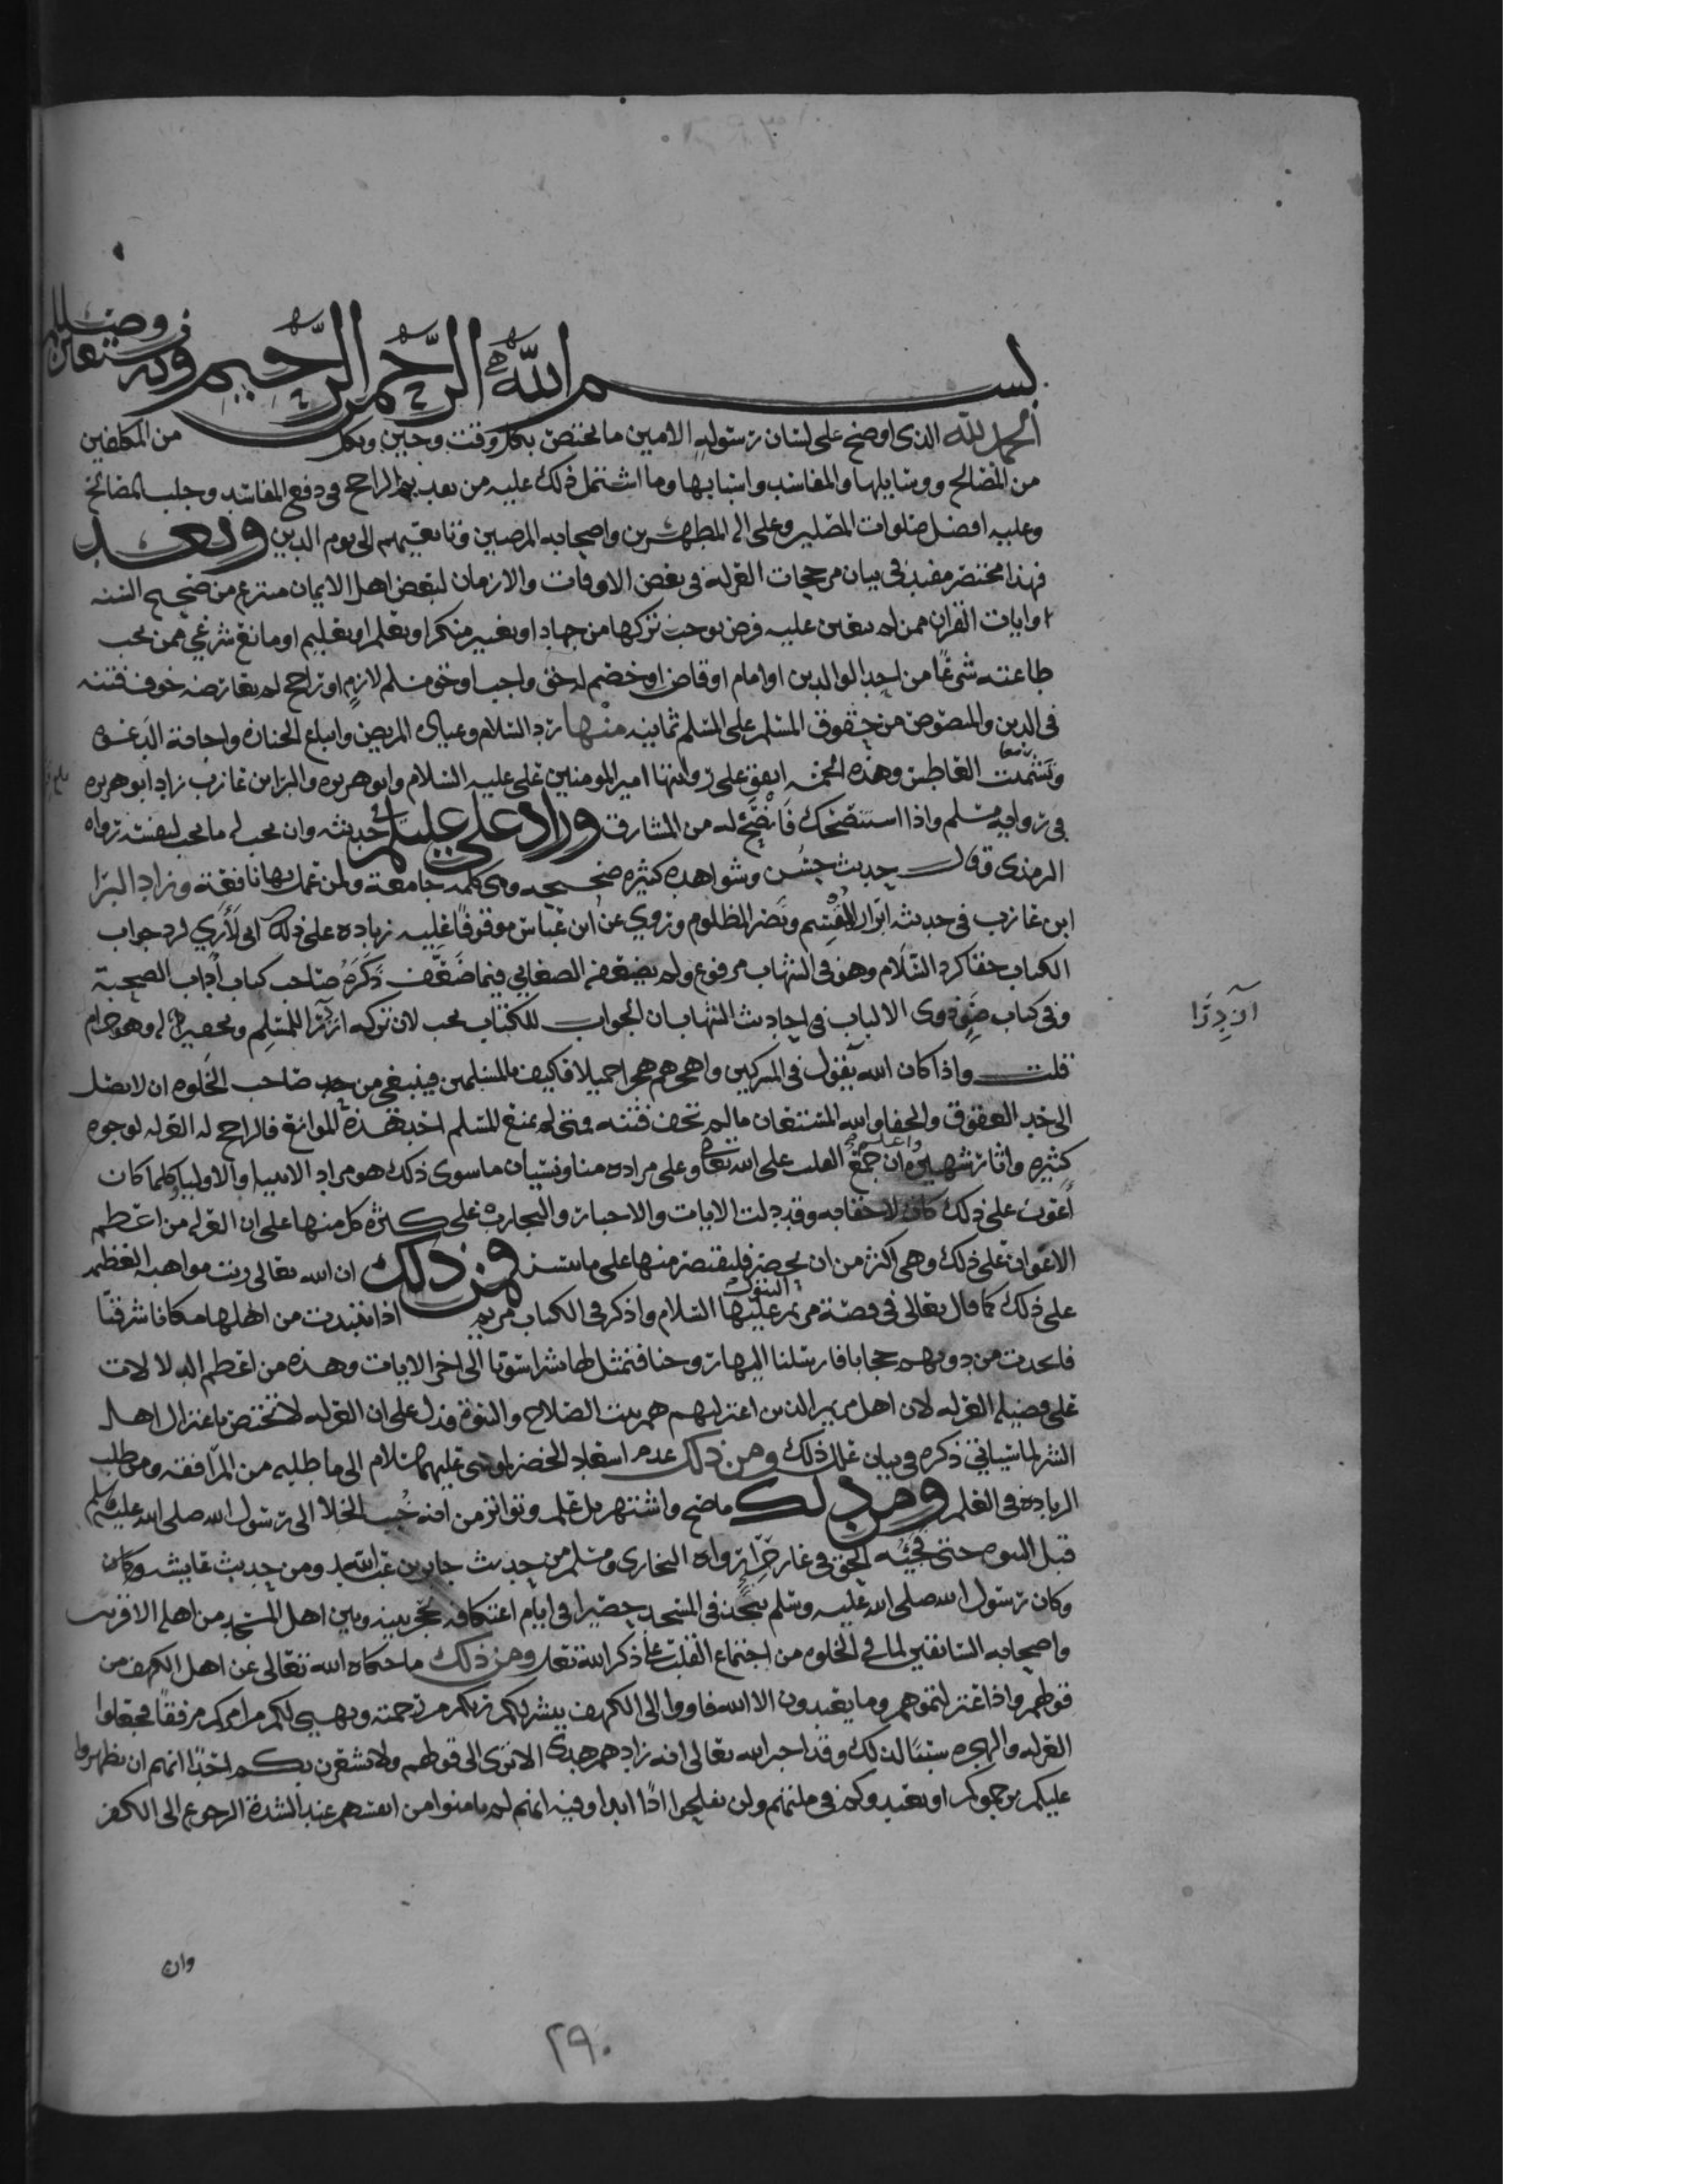 بسم الله الرحمن الرحيم وبه نستعين
الحمد لله الذي اوضح على لسان رسوله الامين ما يختص بكل وقت وحين وبكل من المكلفين
من المصالح ووسايلها والمفاسد واسبابها وما اشتمل ذلك عليه من تقديم الراجح في دفع المفاسد وجلب المصالح
وعليه افضل صلوات المصلين وعلى اله المطهرين واصحابه المرضيين وتابعيهم الى يوم الدين وبعد
فهذا مختصر مفيد في بيان مرجحات العزلة في بعض الاوقات والازمان لبعض اهل الايمان منتزع من صحيح السنه
وايات القران ممن لم يتعين عليه فرض يوجب تركها من جهاد او تغيير منكر او تعلم او تعليم او مانع شرعي ممن يجب
طاعته شرعًا من احد الوالدين او امام او قاض او خصم له حق واجب او حق مسلم لازم او راجح لم يعارضه خوف فتنه
في الدين والمنصوص من حقوق المسلم على المسلم ثمانيه منها رد السلام وعياده المريض واتباع الجنازه واجابة الدعوه
وتشميت العاطس وهذه الخمسه اتفق على روايتها امير المومنين علي عليه السلام وابو هريره والبرا بن عازب زاد ابو هريره
في روايه مسلم واذا استنصحك فانصح له من المشارق وزاد علي عليلم في حديثه وان يحب له ما يحب لنفسه رواه
الترمذي وقال حديث حسن وشواهده كثيره صحيحه وهي كلمه جامعة ولمن عمل بها نافعة وزاد البرا
ابن عازب في حديثه ابرار القسم ونصر المظلوم وروي عن ابن عباس موقوفًا عليه زياده على ذلك اني لأري لرد جواب
الكتاب حقا كرد السلام وهو في الشهاب مرفوع ولم يضعفه الصغاني فيما ضعّف ذكره صاحب كتاب آداب الصحبة
وفي كتاب ضو ذوي الالباب في احاديث الشهاب ان الجواب للكتاب يجب لان تركه ازدرا للمسلم وتحقير له وهو حرام
ازدرًا
قلت واذا كان الله يقول في المشركين واهجرهم هجرا جميلا فكيف بالمسلمين فينبغي من صاحب الخلوه ان لا يصل
الى حد العقوق والجفا والله المستعان ما لم تخف فتنه ومتى لم يمنع المسلم احد هذه الموانع فالراجح له العزله لوجوه
كثيره واثار شهيره واعلم ان جمع القلب على الله تعالى وعلى مراده منا ونسيان ما سوى ذلك هو مراد الانبيا والاوليا وكلما كان
أعون على ذلك كان لاحقا به وقد دلت الايات والاخبار والتجارب على كثرة كل منها على ان العزله من اعظم
الاعوان على ذلك وهي اكثر من ان تحصر فلنقتصر منها على ما تيسر فمن ذلك ان الله تعالى رتب مواهبه العظيمه
على ذلك كما قال تعالى في قصة مريم عليها السلام واذكر في الكتاب مريم اذ انتبذت من اهلها مكانا شرقيّا
فاتخذت من دونهم حجابا فارسلنا اليها روحنا فتمثل لها بشرا سويا الى اخر الايات وهذه من اعظم الدلالات
على فضيلة العزله لان اهل مريم الذين اعتزلتهم هم بيت الصلاح والنبوة فدل على ان العزله لا تختص باعتزال اهل
الشر لما سياتي ذكره في بيان علل ذلك ومن ذلك عدم اسعاد الخضر لموسى عليهما السلام الى ما طلبه من المرافقه ومن طلب
الزياده في العلم ومن ذلك ما صح واشتهر بل علم وتواتر من انه حُبب الخلا الى رسول الله صلى الله عليه وسلم
قبل النبوه حتى فجئه الحق في غار حِرا رواه البخاري ومسلم من حديث جابر بن عبدالله ومن حديث عايشه وكان
وكان رسول الله صلى الله عليه وسلم يتخذ في المسجد حصيرا في ايام اعتكافه تحجر بينه وبين اهل المسجد من اهله الاقربين
واصحابه السابقين لما في الخلوه من اجتماع القلب على ذكر الله تعلى ومن ذلك ما حكاه الله تعالى عن اهل الكهف من
قولهم واذا اعتزلتموهم وما يعبدون الا الله فاووا الى الكهف ينشر لكم ربكم من رحمته ويهيي لكم من امركم مرفقا فجعلوا
العزله والهجره سببًا لذلك وقد اخبر الله تعالى انه زادهم هدى الا ترى الى قولهم ولا يشعرن بكم احدًا انهم ان يظهروا
عليكم يرجموكم او يعيدوكم في ملتهم ولن تفلحوا اذًا ابدا وفيه انهم لم يامنوا من انفسهم عند الشدة الرجوع الى الكفر
وان
٢٩٠